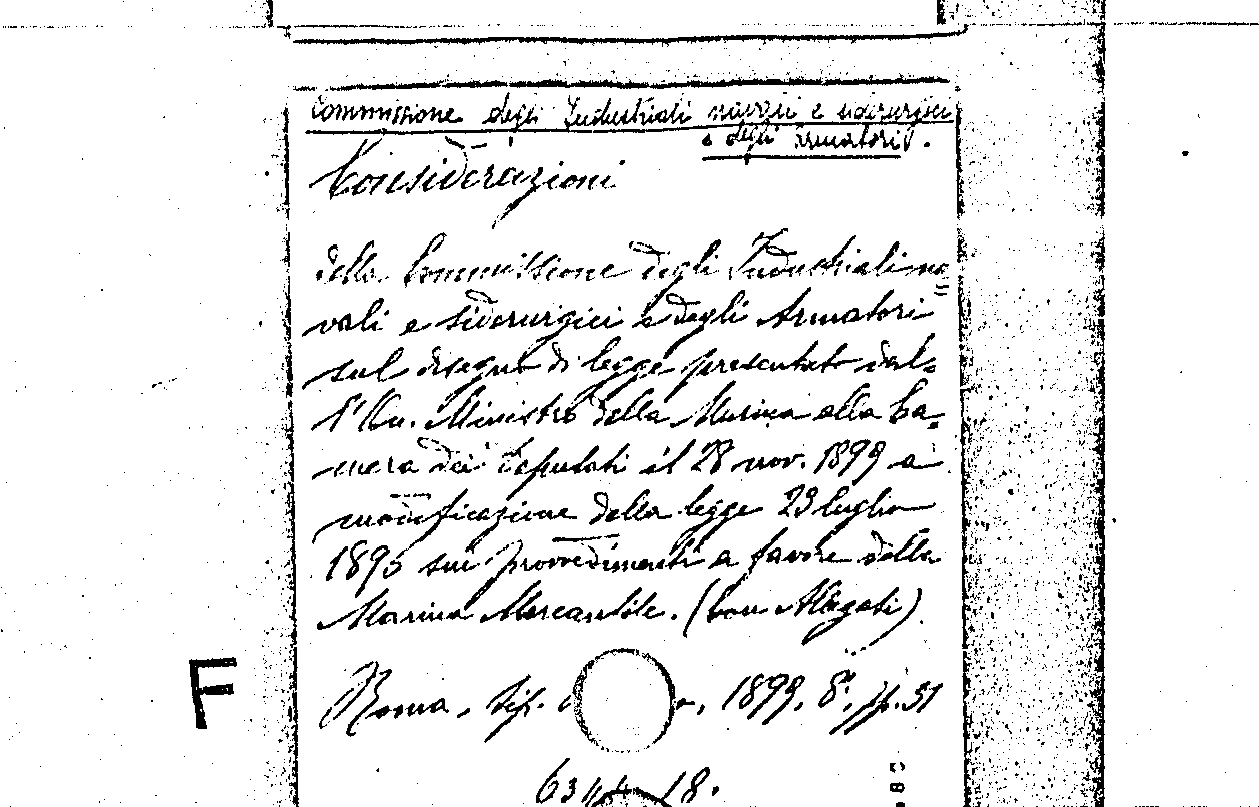 Commissione degli Industriali navali e siderurgici
e degli Armatori.
Considerazioni
della Commissione degli Industriali na=
vali e siderurgici e degli Armatori
sul disegno di legge presentato dal=
l'On. Ministro della Marina alla Ca=
mera dei Deputati il 28 nov. 1899 a
modificazione della legge 23 luglio
1896 sui provvedimenti a favore della
Marina Mercantile. (Con Allegati)
Roma, Tip. 1899. 8º. pp. 51
F
63 18.